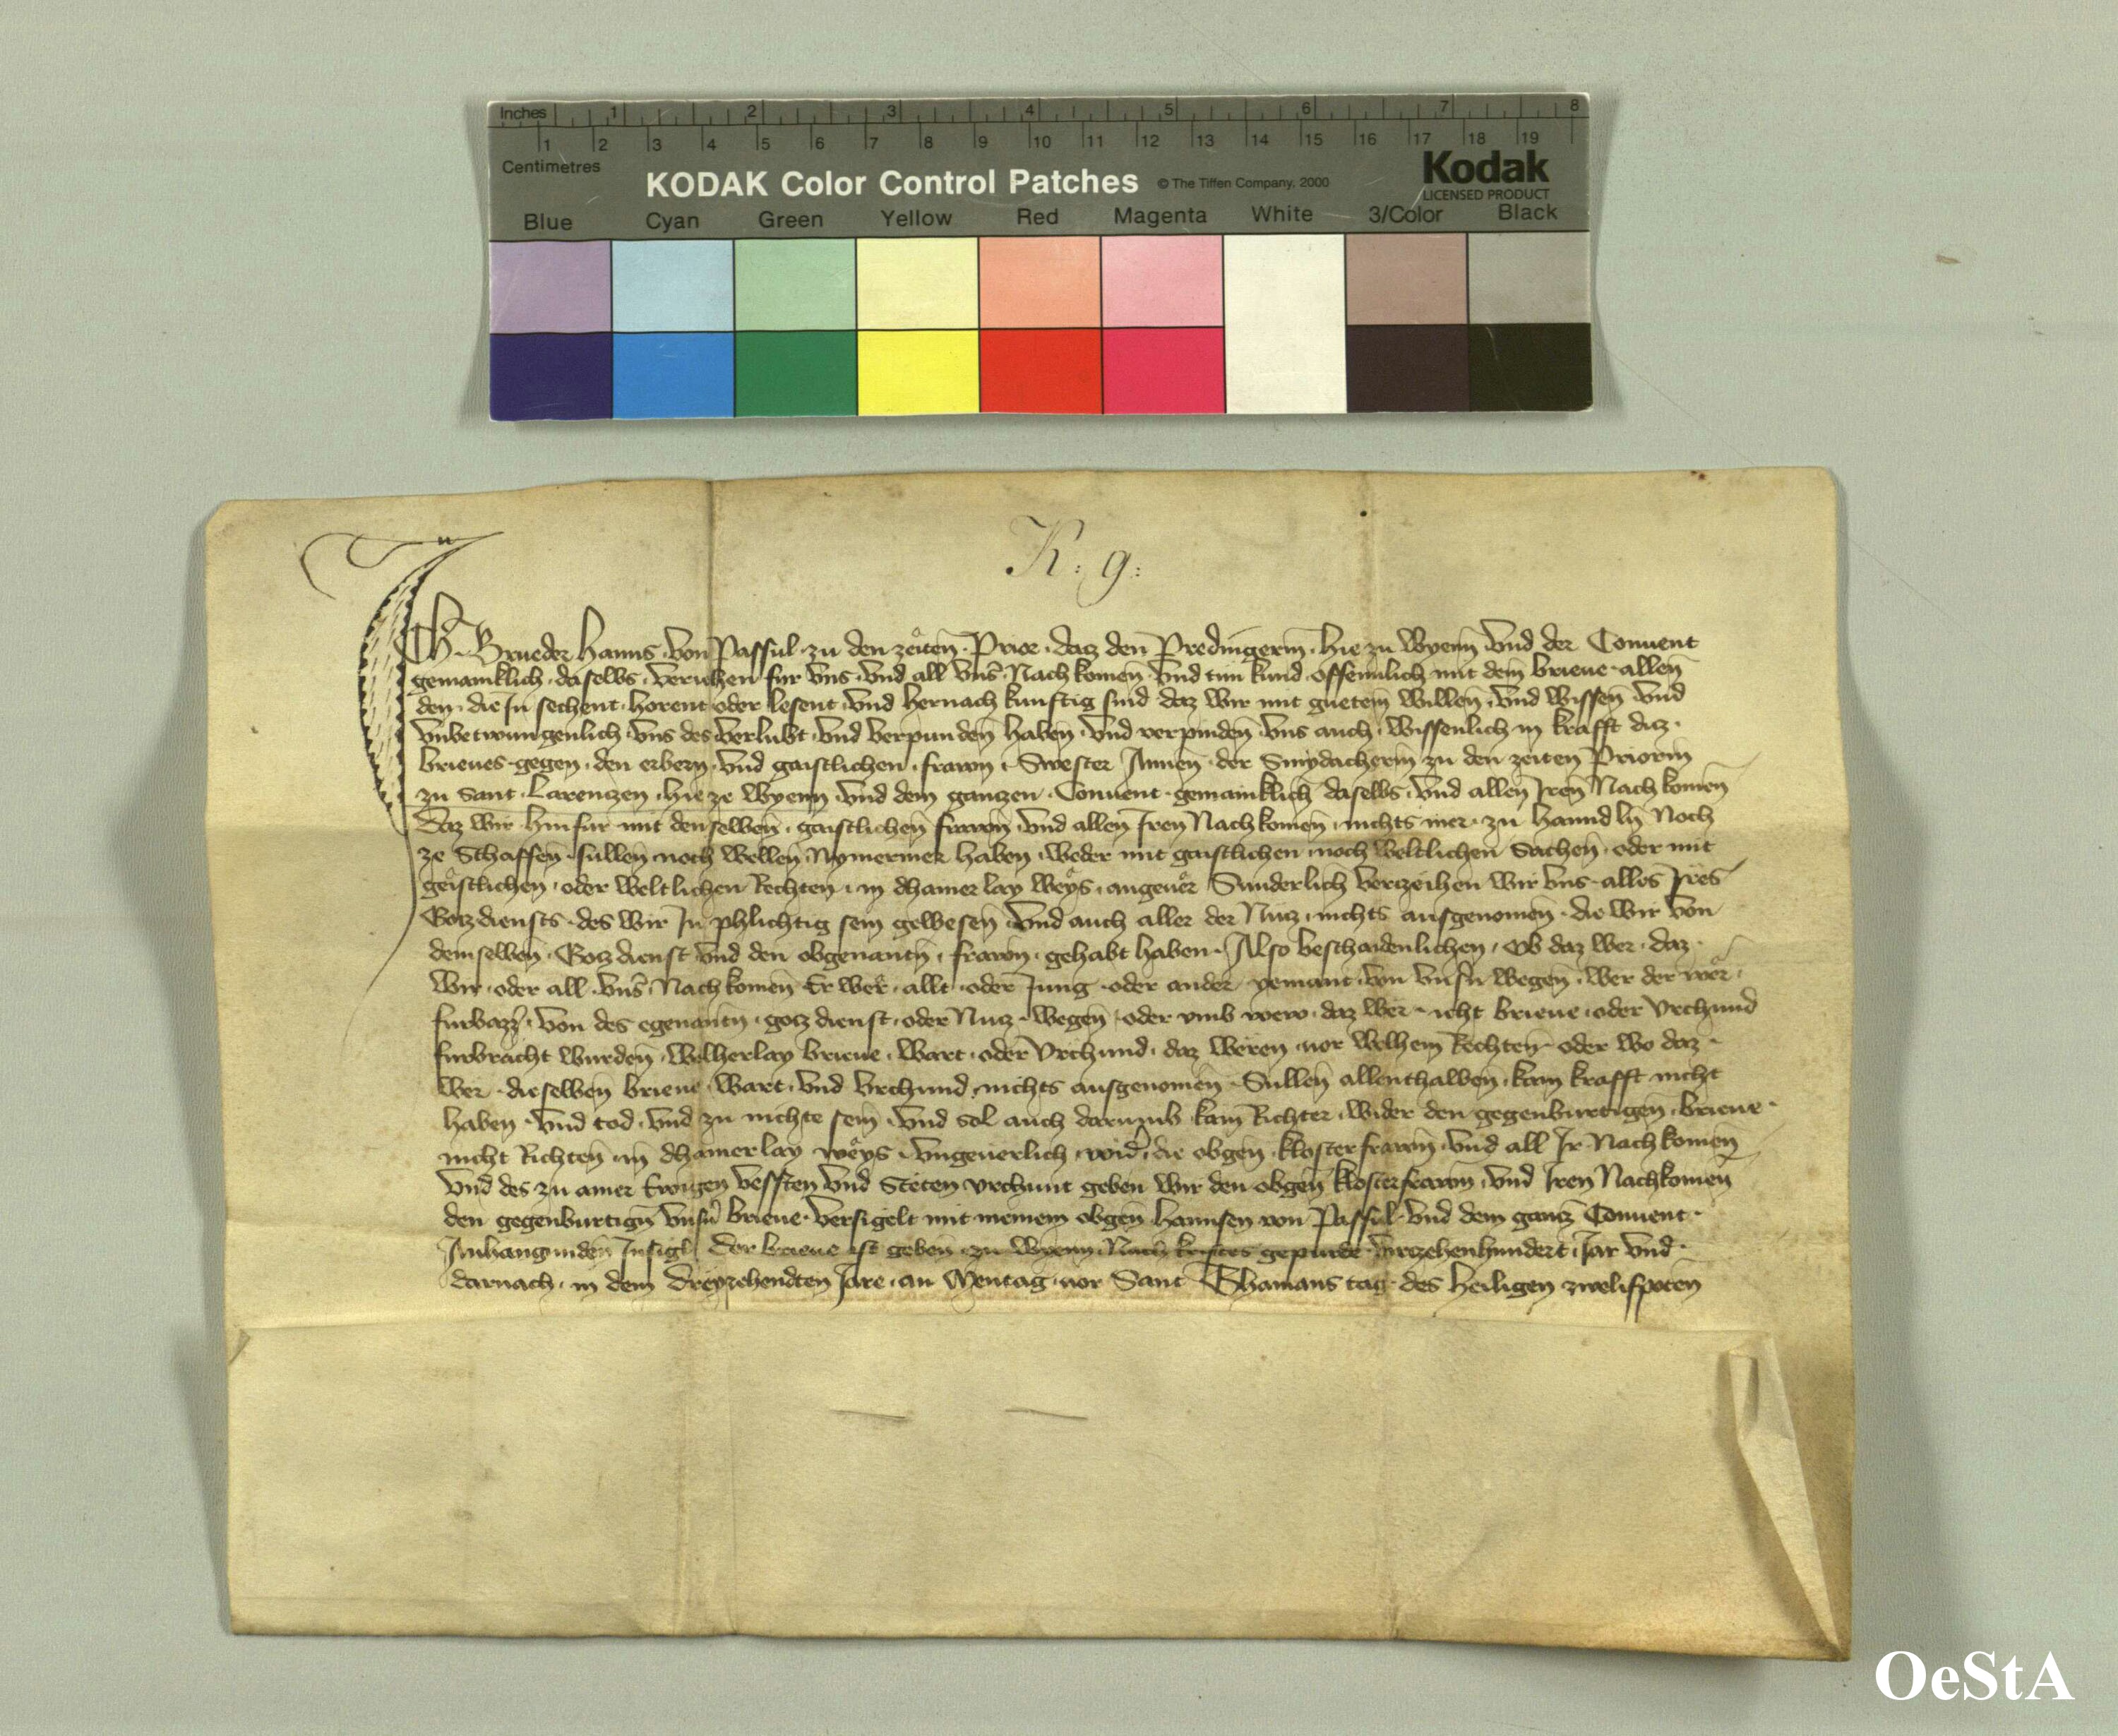 Inches 1 2 3 4 5 6 7 8
1 2 3 4 5 6 7 8 9 10 11 12 13 14 15 16 17 18 19
Centimetres
KODAK Color Control Patches © The Tiffen Company, 2000 Kodak
LICENSED PRODUCT
Blue Cyan Green Yellow Red Magenta White 3/Color Black
K: 9:
ICH Brueder Hanns von Passul zu den zeiten Prior daz den Predingerin hie zu Wyenn Vnd der Conuent
gemainklich daselbs veriehen fur vns vnd all vns Nachkomen Vnd tun kund offennlich mit dem brieue allen
den die In sechent horent oder lesent vnd hernach kunftig sind daz wir mit guetem willen vnd wissen vnd
vnbetwungenlich vns des verlubt vnd verpunden haben vnd verpinden vns auch wissenlich in krafft diz
brieues gegen den erbern vnd gaistlichen frawn Swester Annen der Smydacherin zu den zeiten Priorin
zu sant Larenczen hie ze Wyenn vnd dem ganczen Conuent gemainklich daselbs vnd allen Iren Nachkomen
Daz wir hinfur mit denselben gaistlichen frawn vnd allen Iren Nachkomen nichts mer zu hanndln Noch
ze Schaffen sullen noch wellen Nymermer haben weder mit gaistlichen noch weltlichen Sachen oder mit
geistlichen oder weltlichen Rechten in dhainer lay weys angeuer Sunderlich verczeihen wir vns alles Ires
Gotzdiensts des wir In phlichtig sein gewesen vnd auch aller der Nucz nichts ausgenomen die wir von
demselben Gotzdienst vnd den obgenantn frawn gehabt haben Also beschaidenlichen Ob daz wer daz
wir oder all vns Nachkomen Er wer allt oder Jung oder ander yemant von vnsn wegen wer der wer
furbazz von des egenantn gotzdienst oder Nucz wegen oder vmb wew daz wer icht brieue oder Vrchund
furbracht wurden welherlay brieue wart oder Vrchund daz weren vor welhem Rechten oder wo daz
wer dieselben brieue wart vnd vrchund nichts ausgenomen Sullen allenthalben kain krafft nicht
haben vnd tod vnd zu nichte sein vnd sol auch darumb kain Richter wider den gegenburtigen brieue
nicht Richten in dhainerlay weys vngeuerlich wid die obgen klosterfrawn vnd all Ir Nachkomen
Vnd des zu ainer Ewigen vessten vnd Steten vrchunt geben wir den obgen klosterfrawn vnd Iren Nachkomen
den gegenburtign vnsn brieue versigelt mit meinem obgen hannsen von Passul vnd dem gancz Conuent
Anhangunden Insigl Der brieue ist geben zu Wyenn Nach kristes gepurde virczehenhundert Iar vnd
darnach in dem dreyzehendten Jare an Mentag vor Sant Thamans tag des heiligen zwelifpoten
OeStA